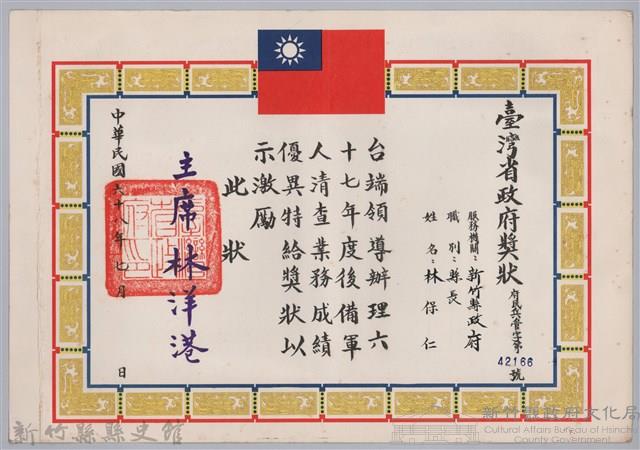 臺灣省政府獎狀
府民兵壹字第42166號
服務機關：新竹縣政府
職別：縣長
姓名：林保仁
台端領導辦理六
十七年度後備軍
人清查業務成績
優異特給獎狀以
示激勵
此狀
主席林洋港
中華民國六十八年七月 日
新竹縣縣史館
新竹縣政府文化局
Cultural Affairs Bureau of Hsinchu
County Government